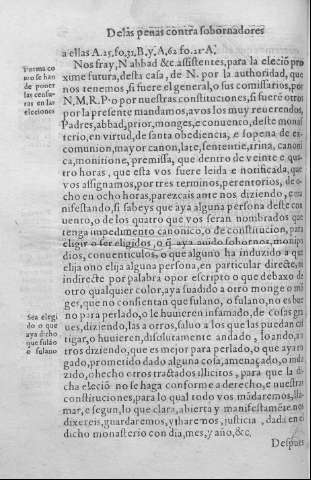 De las penas contra sobornadores
a ellas A.25,fo,31,B,y A,62 fo.21.A.
Nos fray, N abbad &c.assistentes, para la eleciõ pro
xime futura, desta casa, de N. por la authoridad, que
nos tenemos, si fuere el general, o sus comissarios, por
N,M.R.Pº o por nuestras constituciones, si fuere otros
por la presente mandamos, a vos los muy reuerendos,
Padres, abbad, prior, monges, e conuento, deste mone
terio, en virtud, de santa obediencia, e sopena de ex
comunion, mayor canon, late, sententie, trina, canoni
ca, monitione, premissa, que dentro de veinte e qua
tro horas, que esta vos fuere leida e notificada, que
vos assignamos, por tres terminos, perentorios, de o-
cho en ocho horas, parezcais ante nos diziendo, e ma
nifestando, si sabeys que aya alguna persona deste co
uento, o de los quatro que vos seran nombrados que
tenga impedimento canonico, o de constitucion, para
eligir o ser eligidos, o q̃ aya auido sobornos, monipo
dios, conuenticulos, o que alguno ha induzido a que
elija o no elija alguna persona, en particular directe, in
indirecte por palabra o por escripto o que debaxo de
otro qualquier color, aya suadido a otro monge o mõ
ges, que no consientan que fulano, o fulano, no es bue
no para perlado, o le huuieren infamado, de cosas gra
ues, diziendo, las a otros, saluo a los que las puedan cas
tigar, o huuieren, dissolutamente andado, loando, a o
tros diziendo, que es mejor para perlado, o que aya ro
gado, prometido dado alguna cosa, amenaçado, o indu
zido, o hecho otros tractados illicitos, para que la di
cha eleciõ no se haga conforme a derecho, e nuestras
constituciones, para lo qual todo vos mãdaremos, lla-
mar, e segun, lo que clara, abierta y manifestamẽte nos
dixereis, guardaremos, y tharemos, justicia, dada en el
dicho monasterio con dia, mes, y año, &c.
Despues
Forma co
mo se han
de poner
las censu-
ras en las
eleciones
Sea elegi
do o que
aya dicho
que fulão
o fulano